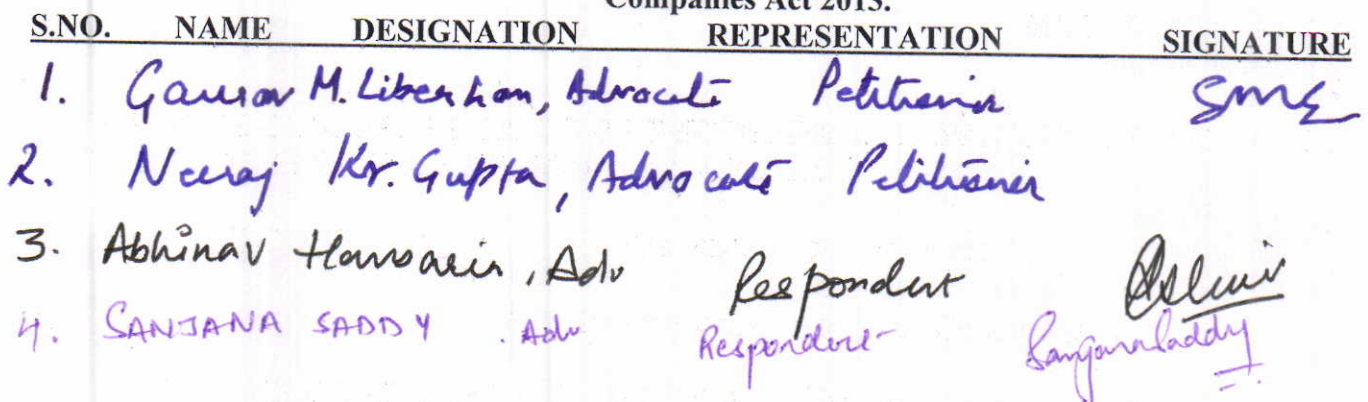 Companies Act 2013.
S.NO. NAME DESIGNATION REPRESENTATION SIGNATURE
1. Gaurav M. Liberhan, Advocate Petitioner
2. Neeraj Kr. Gupta, Advocate Petitioner
3. Abhinav Hansaria, Adv Respondent
4. SANJANA SADDY . Adv Respondent Sanjana Saddy